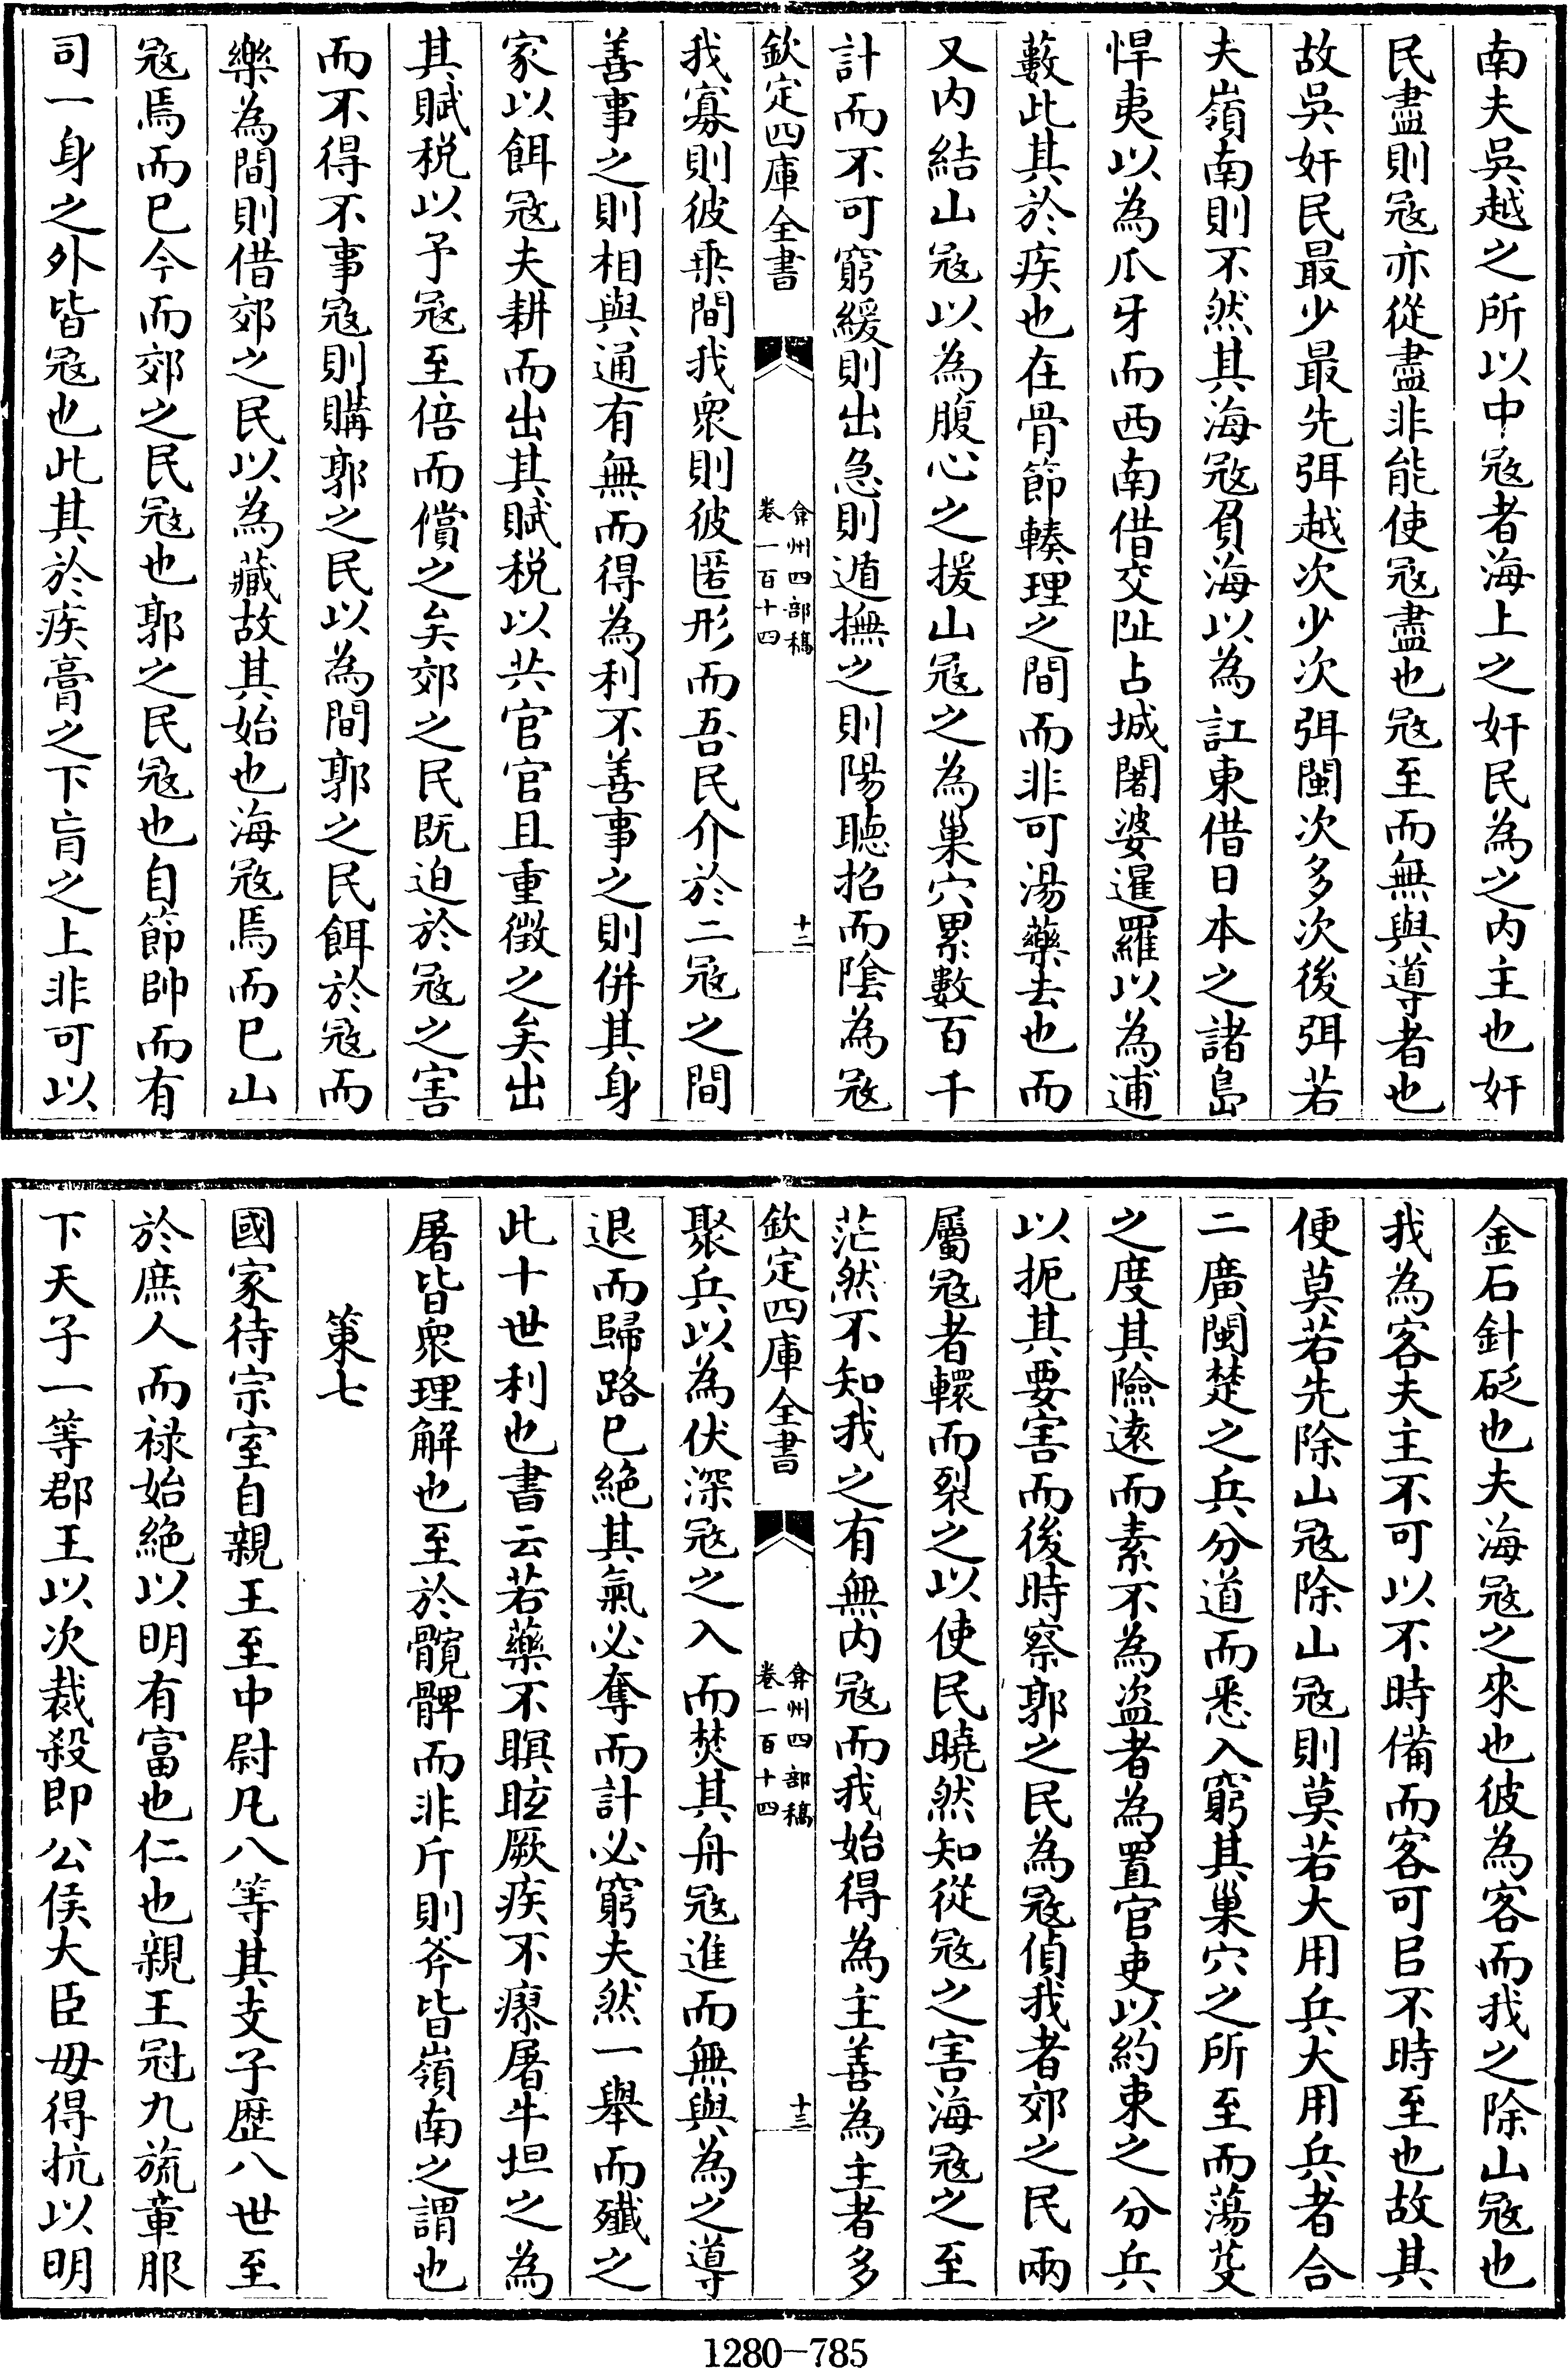 南夫吳越之所以中冦者海上之奸民為之内主也奸
民盡則冦亦從盡非能使冦盡也冦至而無與導者也
故吳奸民最少最先弭越次少次弭閩次多次後弭若
夫嶺南則不然其海冦負海以為訌東借日本之諸島
悍夷以為爪牙而西南借交阯占城闍婆暹羅以為逋
藪此其於疾也在骨節轃理之間而非可湯藥去也而
又内結山冦以為腹心之援山冦之為巢穴累數百千
計而不可窮緩則出急則遁撫之則陽聽招而陰為冦
欽定四庫全書
弇州四部稿
卷一百十四
十二
我寡則彼乗間我衆則彼匿形而吾民介於二冦之間
善事之則相與通有無而得為利不善事之則併其身
家以餌冦夫耕而出其賦税以共官官且重徵之矣出
其賦税以予冦至倍而償之矣郊之民既迫於冦之害
而不得不事冦則購郭之民以為間郭之民餌於冦而
樂為間則借郊之民以為藏故其始也海冦焉而已山
冦焉而已今而郊之民冦也郭之民冦也自節帥而有
司一身之外皆冦也此其於疾膏之下肓之上非可以
金石針砭也夫海冦之來也彼為客而我之除山冦也
我為客夫主不可以不時備而客可㠯不時至也故其
便莫若先除山冦除山冦則莫若大用兵大用兵者合
二廣閩楚之兵分道而悉入窮其巢穴之所至而蕩芟
之度其險遠而素不為盗者為置官吏以約束之分兵
以扼其要害而後時察郭之民為冦偵我者郊之民兩
屬冦者轘而裂之以使民曉然知從冦之害海冦之至
茫然不知我之有無内冦而我始得為主善為主者多
欽定四庫全書
弇州四部稿
卷一百十四
十三
聚兵以為伏深冦之入而焚其舟冦進而無與為之導
退而歸路已絶其氣必奪而計必窮夫然一舉而殲之
此十世利也書云若藥不瞑眩厥疾不瘳屠牛坦之為
屠皆衆理解也至於髖髀而非斤則斧皆嶺南之謂也
第七
國家待宗室自親王至中尉凡八等其支子歴八世至
於庶人而禄始絶以明有富也仁也親王冠九旒章服
下天子一等郡王以次裁殺即公侯大臣毋得抗以明
1280-785